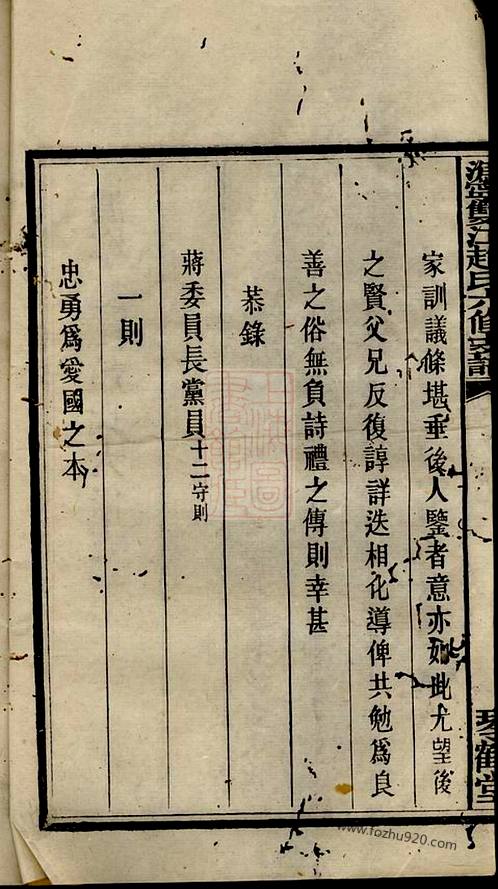 雙江趙氏六修家譜
琴鶴堂
家訓議條堪垂後人鑒者意亦如此尤望後
之賢父兄反復諄詳迭相化導俾共勉為良
善之俗無負詩禮之傳則幸甚
恭錄
蔣委員長黨員十二守則
一則
忠勇爲愛國之本
www.fozhu920.com